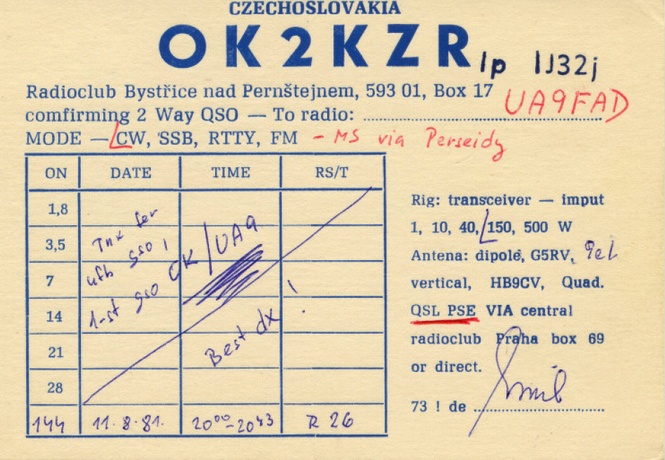 CZECHOSLOVAKIA
OK2KZR/p IJ32j
Radioclub Bystřice nad Pernštejnem, 593 01, Box 17
comfirming 2 Way QSO — To radio: UA9FAD
MODE — CW, SSB, RTTY, FM - MS via Perseidy
ON DATE TIME RS/T
1,8
3,5
7
14
21
28
Tnx fer
ufb QSO !
1-st QSO OK/UA9
Best dx !
144 11.8.81. 20⁰⁰-20⁴³ R 26
Rig: transceiver — imput
1, 10, 40, 150, 500 W
Antena: dipole, G5RV, 9el
vertical, HB9CV, Quad.
QSL PSE VIA central
radioclub Praha box 69
or direct.
73 ! de